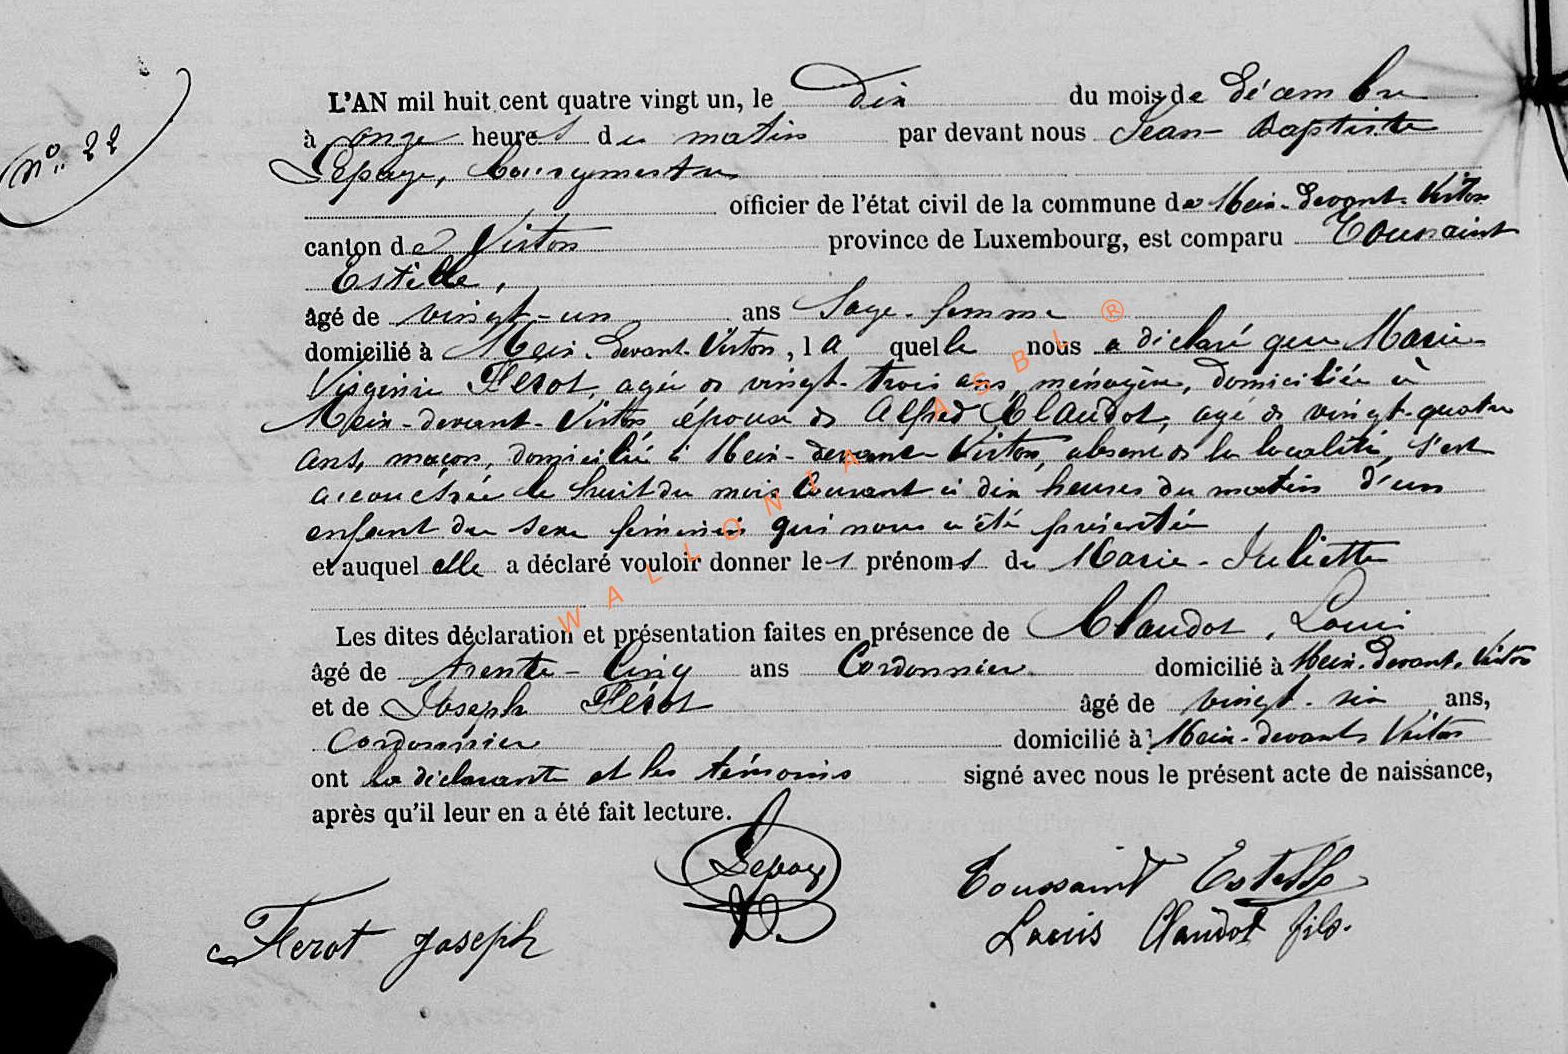 L'AN mil huit cent quatre vingt un, le dix du mois de Décembre
N° 22
à onze heures du matin par devant nous Jean-Baptiste
Lepage, Bourgmestre
officier de l'état civil de la commune de Meix-devant-Virton
canton de Virton province de Luxembourg, est comparu Toussaint
Estelle,
âgé de vingt-un ans Sage-femme
domicilié à Meix-devant-Virton, laquelle nous a déclaré que Marie
Virginie Flérot, agée de vingt-trois ans, ménagère, domiciliée à
Meix-devant-Virton épouse de Alfred Claudot, agé de vingt-quatre
ans, maçon, domicilié à Meix-devant-Virton, absent de la localité, s'est
accouchée le huit du mois courant à dix heures du matin d'un
enfant du sexe féminin qui nous a été présenté
et auquel elle a déclaré vouloir donner les prénoms de Marie-Juliette
Les dites déclaration et présentation faites en présence de Claudot, Louis
âgé de trente-cinq ans Cordonnier domicilié à Meix-devant-Virton
et de Joseph Flérot âgé de vingt-six ans,
Cordonnier domicilié à Meix-devant-Virton
ont la déclarante et les témoins signé avec nous le présent acte de naissance,
après qu'il leur en a été fait lecture.
Lepage
Toussaint Estelle
Flerot Joseph
Louis Claudot fils.
WALLONIA ASBL ®